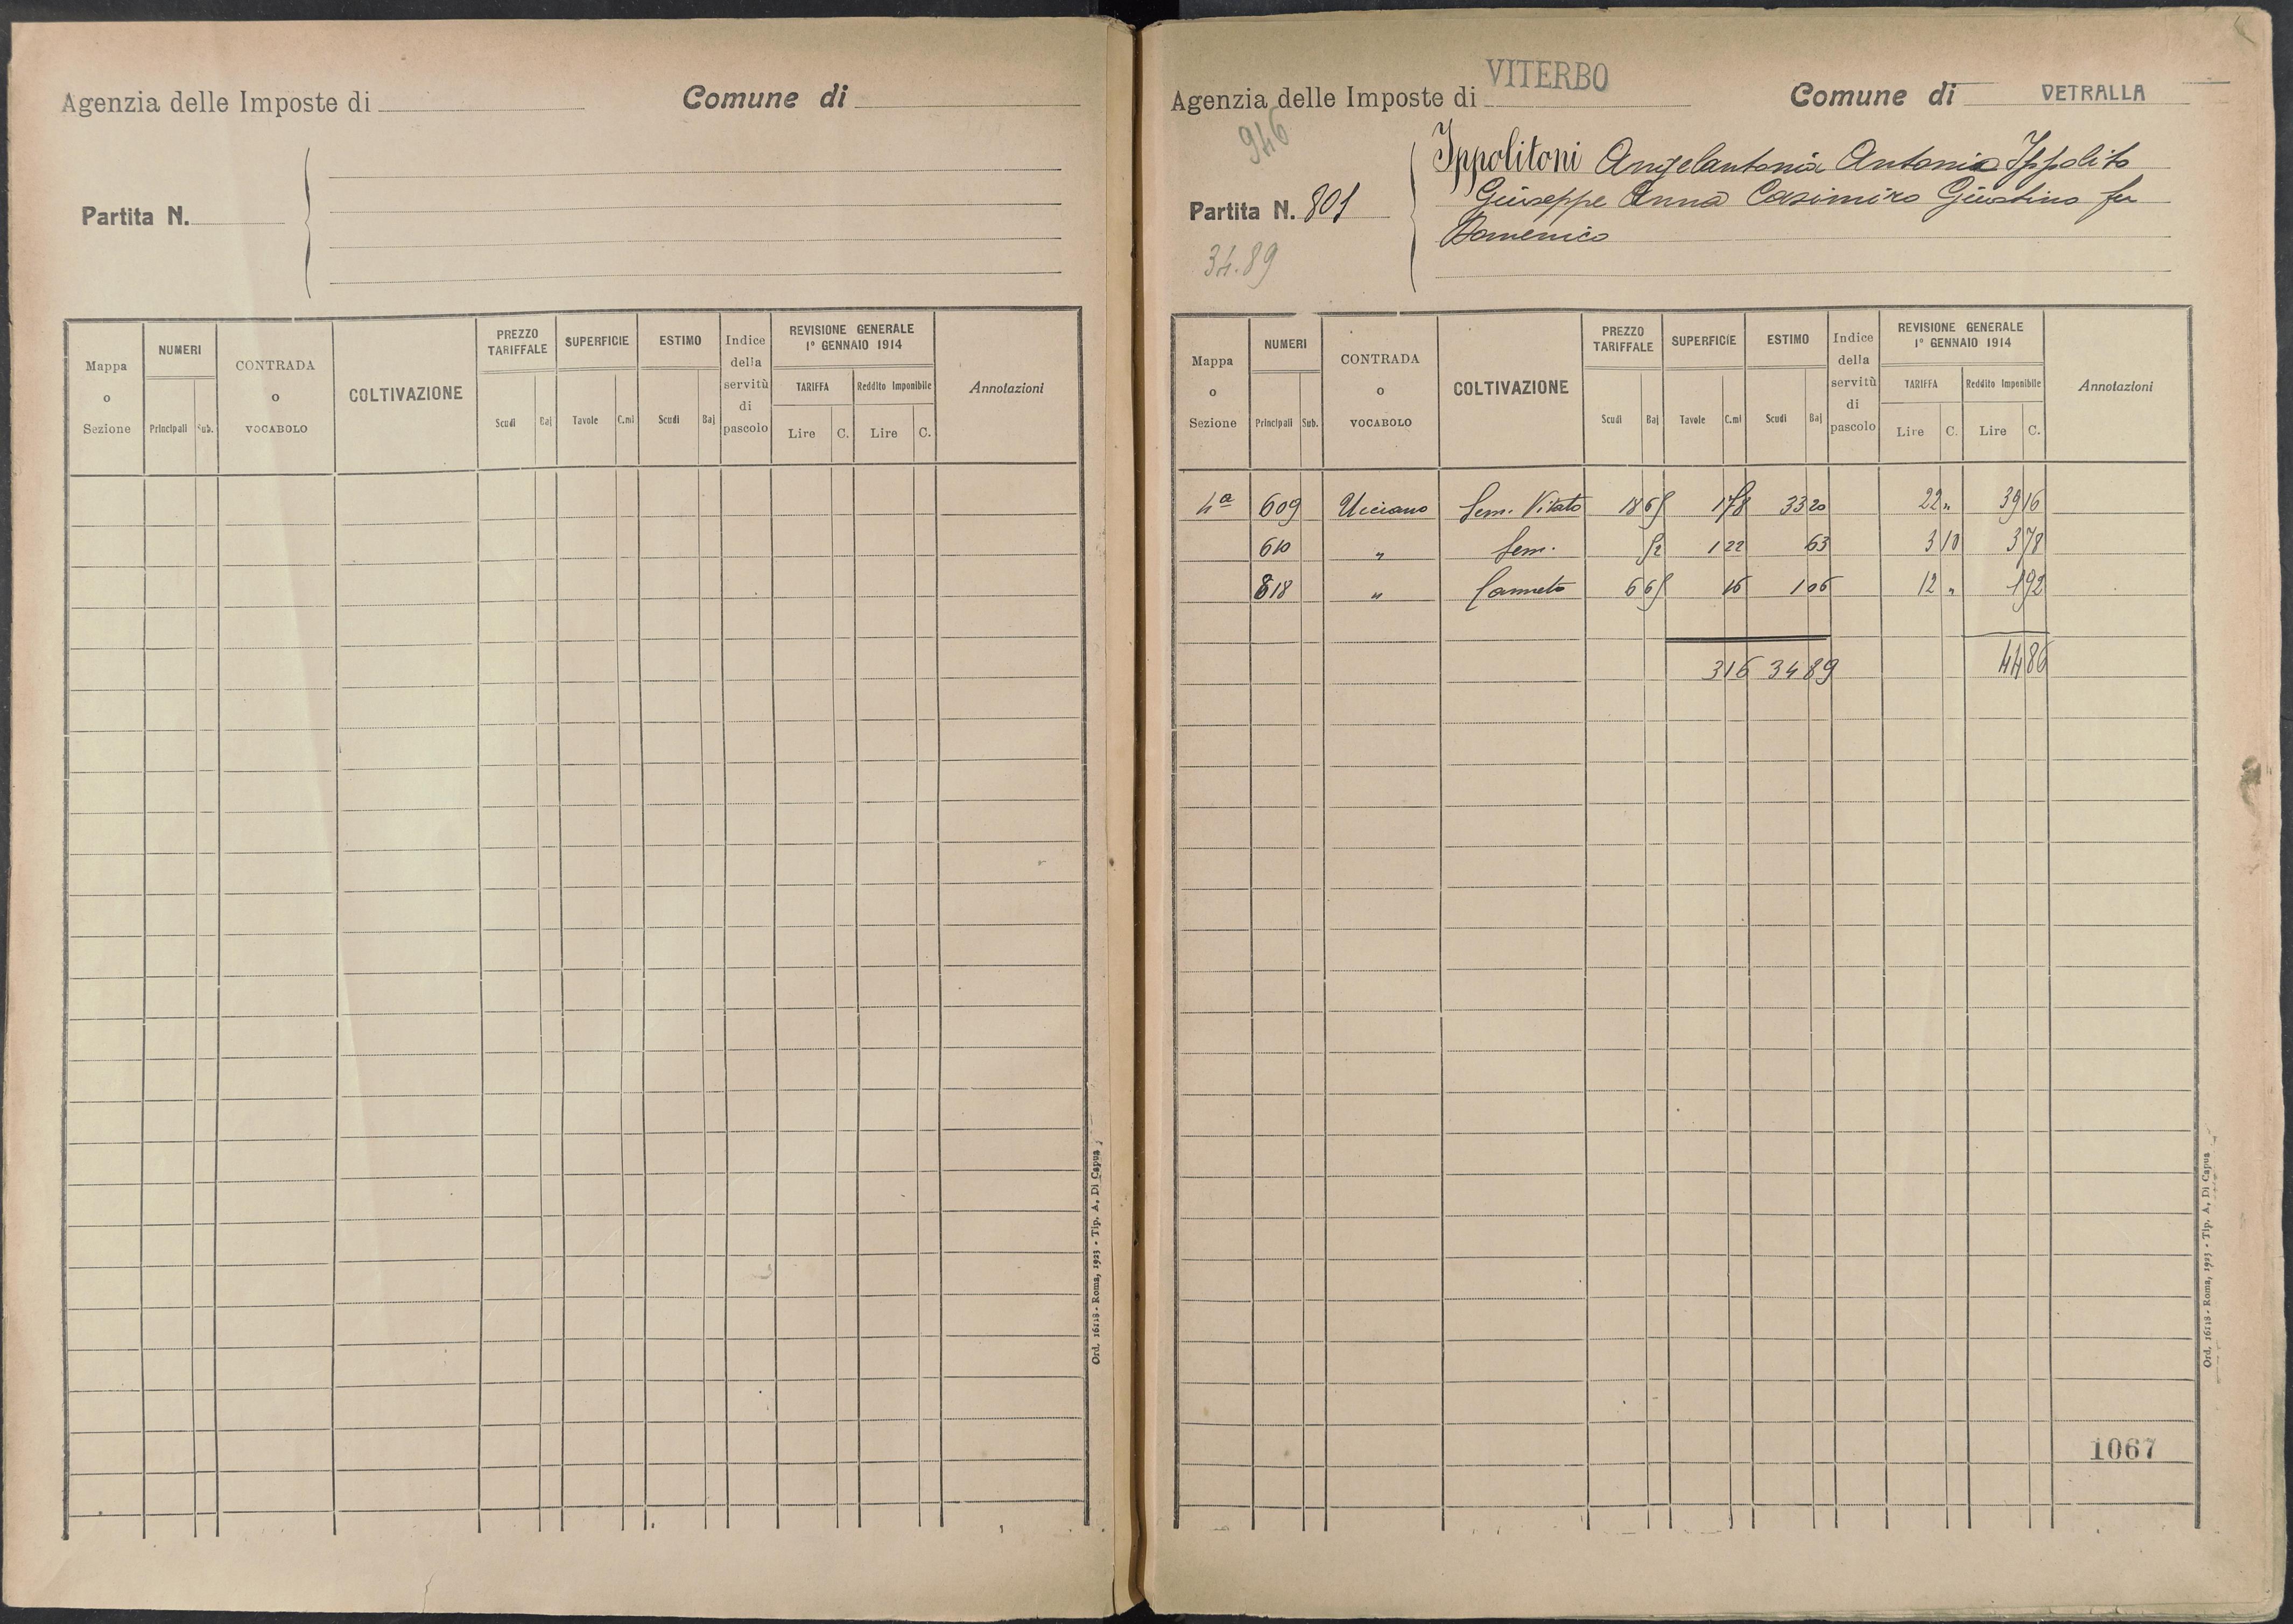 Agenzia delle Imposte di
Comune di
Partita N.
Mappa o Sezione
NUMERI
Principali Sub.
CONTRADA o VOCABOLO
COLTIVAZIONE
PREZZO TARIFFALE
Scudi Baj
SUPERFICIE
Tavole C.mi
ESTIMO
Scudi Baj
Indice della servitù di pascolo
REVISIONE GENERALE
1° GENNAIO 1914
TARIFFA
Lire C.
Reddito Imponibile
Lire C.
Annotazioni
Ord. 16118 - Roma, 1923 - Tip. A. Di Capua
Agenzia delle Imposte di VITERBO
Comune di VETRALLA
946
Partita N. 801
34.89
Ippolitoni Angelantonia Antonia Ippolito
Giuseppe Anna Casimiro Giustino fu
Domenico
Mappa o Sezione
NUMERI
Principali Sub.
CONTRADA o VOCABOLO
COLTIVAZIONE
PREZZO TARIFFALE
Scudi Baj
SUPERFICIE
Tavole C.mi
ESTIMO
Scudi Baj
Indice della servitù di pascolo
REVISIONE GENERALE
1° GENNAIO 1914
TARIFFA
Lire C.
Reddito Imponibile
Lire C.
Annotazioni
4ª 609 Ucciano Sem. Vitato 18 65 1 78 33 20 22 " 39 16
610 " Sem. 52 1 22 63 3 10 3 78
818 " Canneto 6 65 16 1 06 12 " 1 92
3 16 34 89 44 86
1067
Ord. 16118 - Roma, 1923 - Tip. A. Di Capua